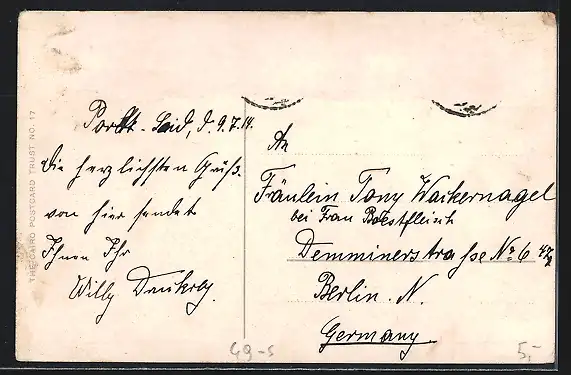 THE CAIRO POSTCARD TRUST NO. 17
Port-Said, d. 9.7.14.
Die herzlichsten Grüße
von hier sendet
Ihnen Ihr
Willy
An
Fräulein Tony Wackernagel
bei Frau
Demminerstrasse No 6
Berlin. N.
Germany.
49-s
5,-